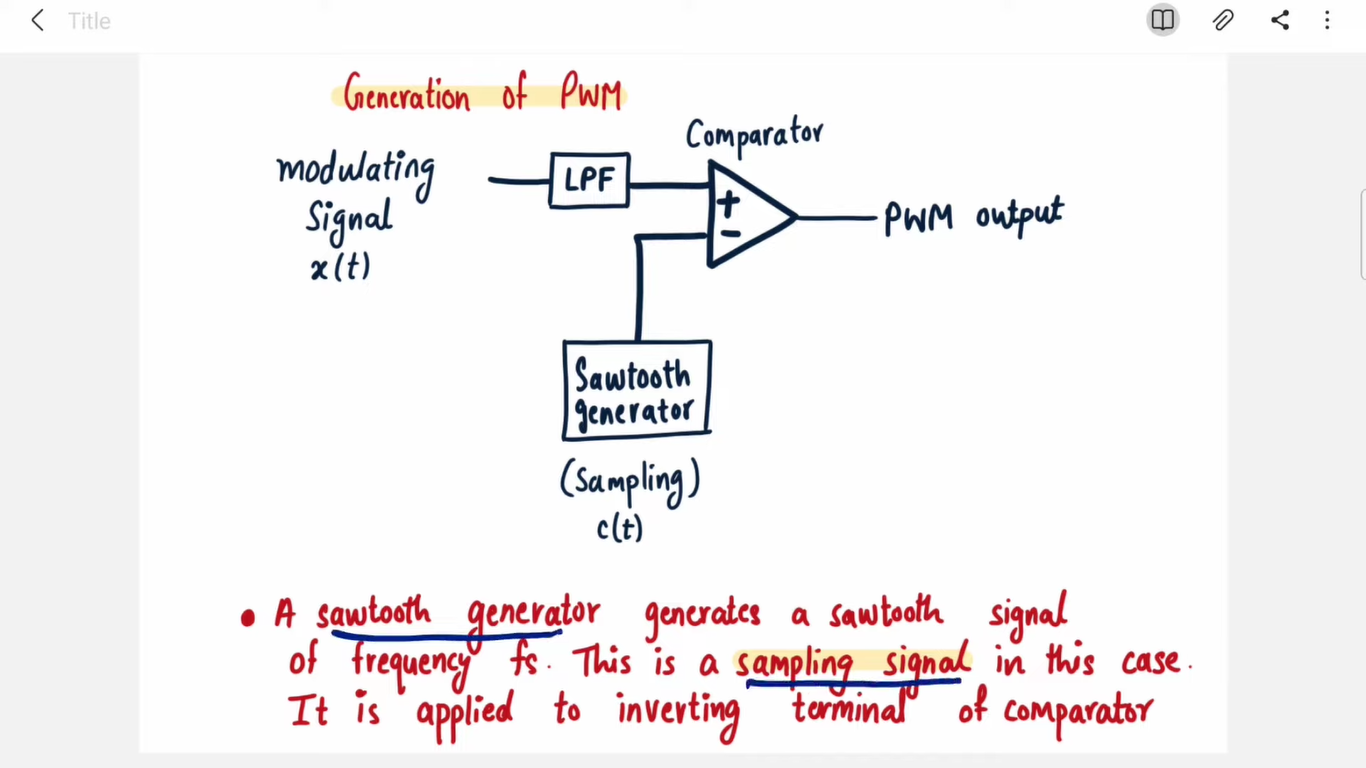 Title
Generation of PWM
Comparator
modulating
Signal
x(t)
LPF
+
−
PWM output
Sawtooth
generator
(Sampling)
c(t)
• A sawtooth generator generates a sawtooth signal
of frequency fs. This is a sampling signal in this case.
It is applied to inverting terminal of comparator